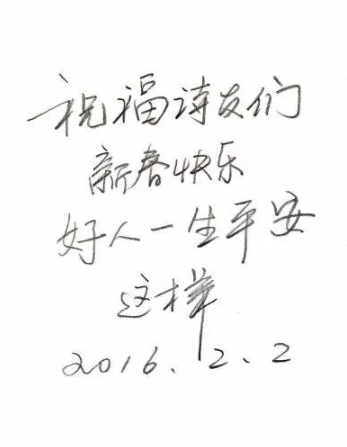 祝福诗友们
新春快乐
好人一生平安
这样
2016.2.2